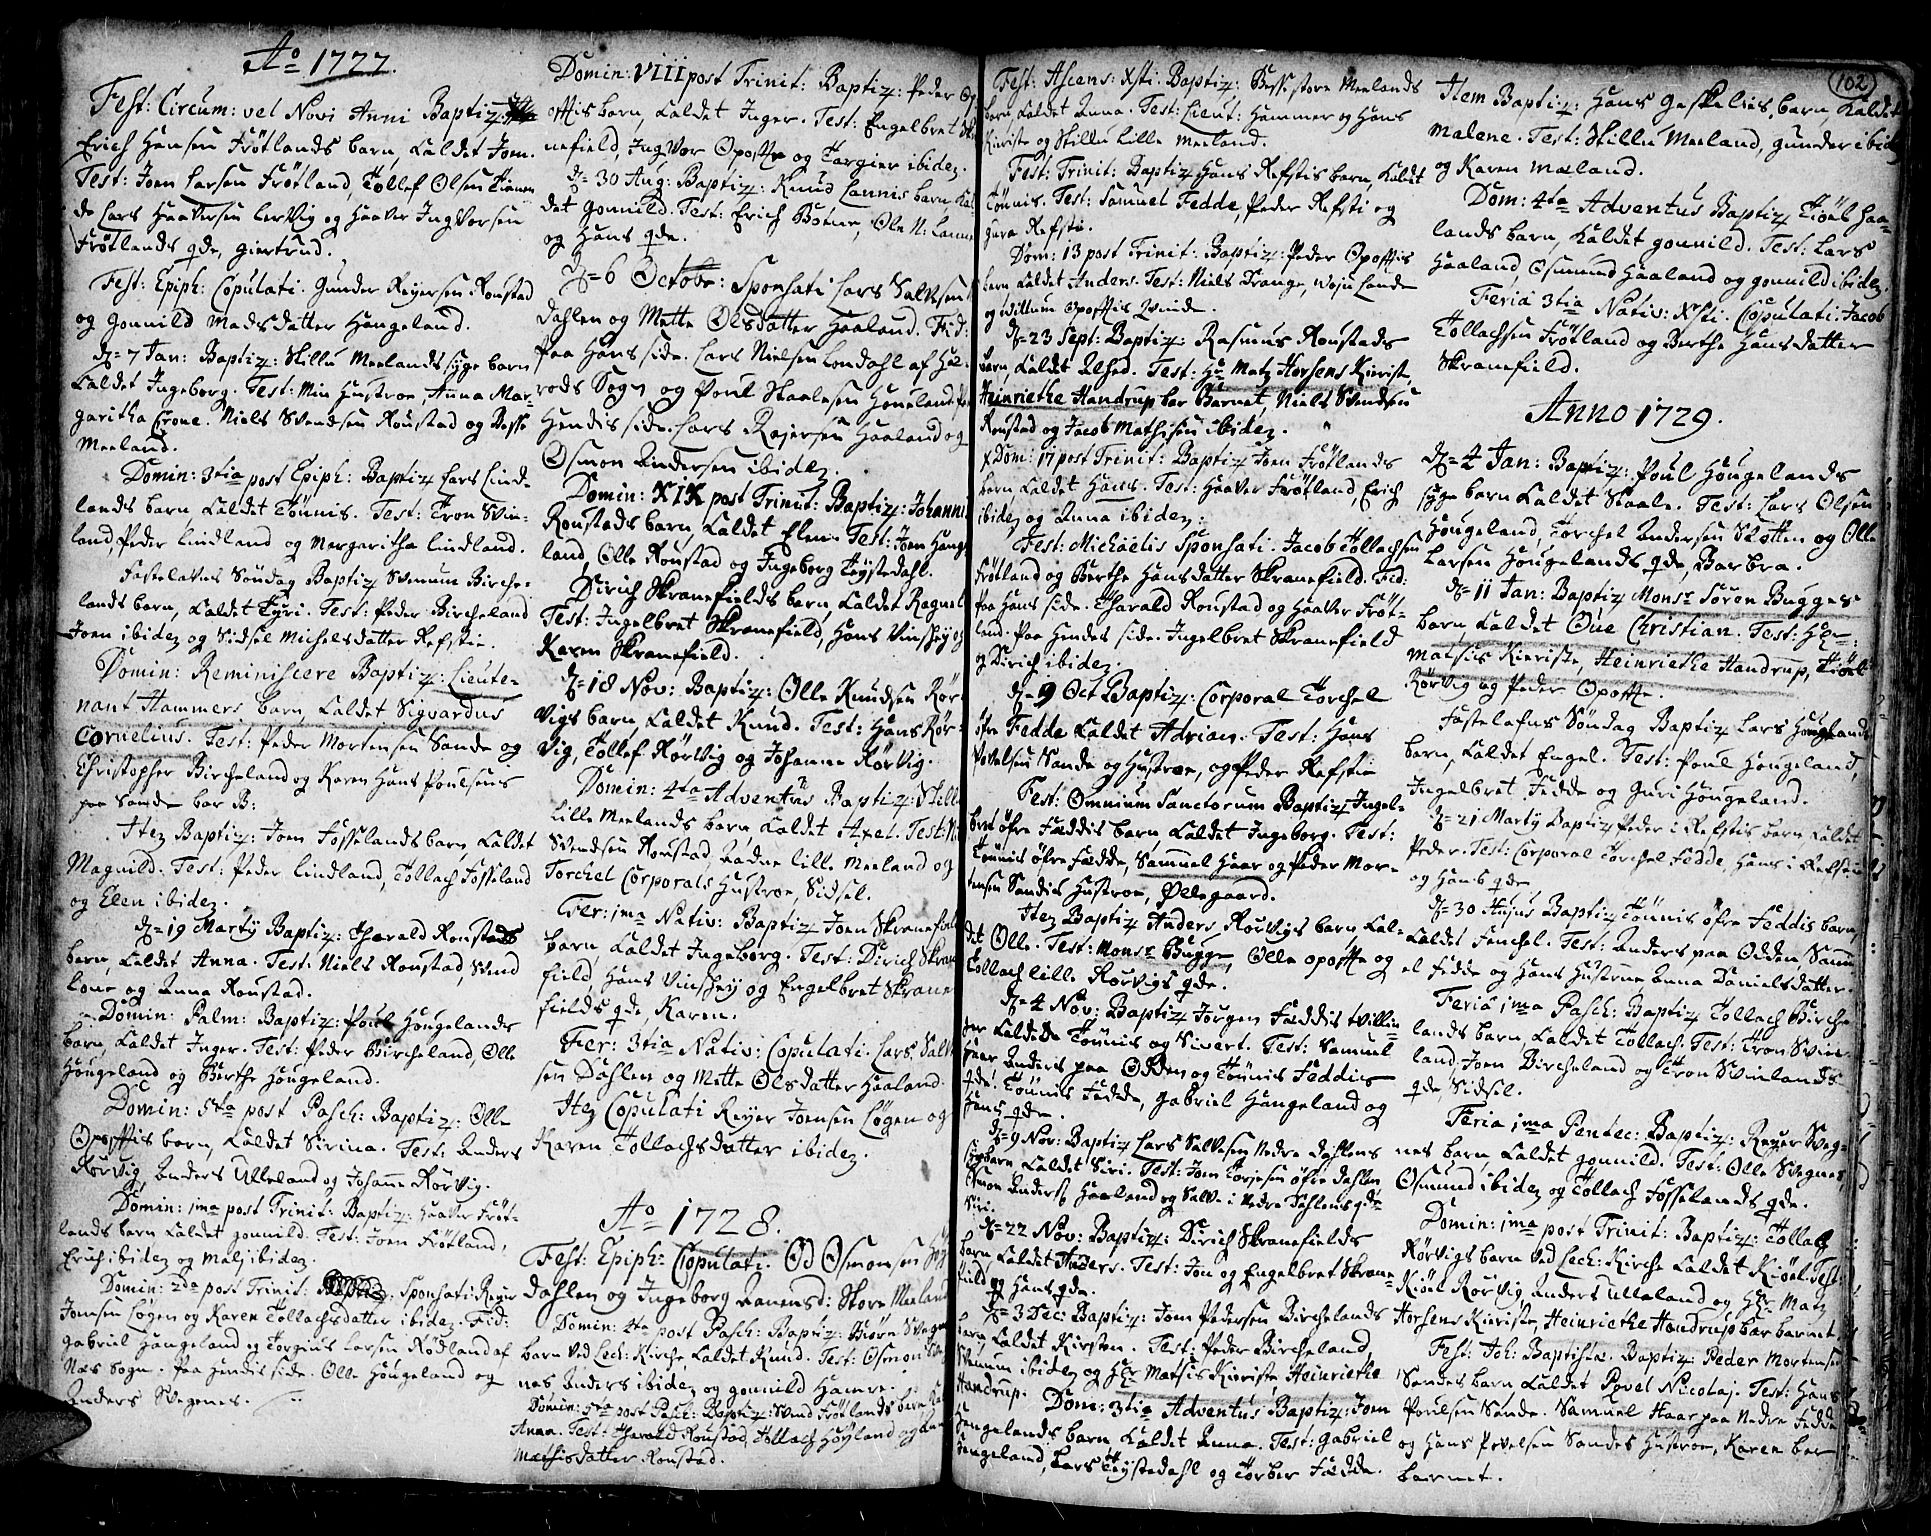 Ao 1727.
Fest: Circum: vel Novi Anni Baptiz:
Erich Hansen Frötlands barn, kaldet Joen.
Test: Joen Larsen Frötland, Tollef Olsen
de Lars Haaversen Lervig og Haaver Ingvorsen
Frötlands qde, giertrud.
Fest: Epiph: Copulati. Gunder Reyersen Ronstad
og Gonnild Madsdatter Hougeland.
d. 7 Jan: Baptiz: Skillu Meelands syge barn
kaldet Ingeborg. Test: Min Hustroe, Anna Mar-
garitha Crone. Niels Svendsen Ronstad og Besse
Meeland.
Domin: 3tia post Epiph: Baptiz Lars Lind-
lands barn kaldet Tönnis. Test: Tron Svin-
land, Peder Lindland og Mergaritha Lindland.
Fastelavns Söndag Baptiz Svenum Birche-
lands barn, kaldet Tyri. Test: Peder Bircheland
Joen ibidez og Sidsel Michelsdatter Refstie.
Domin: Reminiscere Baptiz: Lieute-
nant Hammers barn, kaldet Sigvardus
Cornelius. Test: Peder Mortensen Sande og
Christopher Bircheland og Karen Hans Poulsens
paa Sande bar B:
Itez Baptiz: Joen Fosselands barn, kaldet
Magnild. Test: Peder Lindland, Tollach Fosseland
og Elen ibidez.
d. 19 Marty Baptiz: Tharald Ronstads
barn, kaldet Anna. Test: Niels Ronstad, Svend
Lone og Anna Ronstad.
Domin: Palm: Baptiz: Poul Hougelands
barn, kaldet Inger. Test: Peder Bircheland, Olle
Hougeland og Berthe Hougeland.
Domin: 5ta post Pasch: Baptiz: Olle
Opofttis barn, kaldet Sirina. Test: Anders
Rörvig, Anders Ulleland og Johanne Rörvig.
Domin: 1ma post Trinit: Baptiz: Haaver Fröt-
lands barn kaldet gonnild. Test: Joen Frötland,
Erich ibidez og Malj ibidez.
Domin: 2da post Trinit: Sponsati: Reyer
Joensen Lögen og Karen Tollachsdatter ibidez. Fid:
gabriel Hougeland og Torgius Larsen Rödland af
Næs Sogn. Paa hendis side. Olle Hougeland og
Anders Svegenes.
Domin: VIII post Trinit: Baptiz: Peder
offtis barn, kaldet Inger. Test: Engelbret
nefield, Ingvor Opoffte og Torgier ibidez.
d. 30 Aug: Baptiz: Knud Lannis barn kal
det gonnild. Test: Erich Botne, Ole N: Lanne
og Hans qde.
d. 6 Octobr: Sponsati Lars Salvesen
Dahlen og Mette Olsdatter Haaland. Fid:
Paa Hans side. Lars Nielsen Londahl af Hal
rods Sogn og Poul Staalesen Hougeland.
Hendis side. Lars Rejersen Haaland og
Osmon Andersen ibidez.
Domin: XIX post Trinit: Baptiz: Johannis
Ronstads barn, kaldet Elen. Test: Joen Houge
land, Olle Ronstad og Ingeborg Teystedahl.
Dirich Skranefields barn, kaldet Ragnel
Test: Ingelbret Skranefield, Hans Vinshey og
Karen Skranefield.
d. 18 Nov: Baptiz: Olle Knudsen Rör-
vigs barn, kaldet Knud. Test: Hans Rör-
vig, Tollef Rörvig og Johanne Rörvig.
Domin: 4ta Adventus Baptiz: Skillu
Lille Meelands barn kaldet Axel. Test: Ni
Svendsen Ronstad, Aadne lille Meeland og
Torchel Corporals Hustroe, Sidsel.
Fer: 1ma Nativ: Baptiz Joen Skranefields
barn kaldet Ingeborg. Test: Dirich Skrane
field, Hans Vinshey og Engelbret Skrane
fields qde, Karen.
Fer: 3tia Nativ: Copulati. Lars Salve
sen Dahlen og Mette Olsdatter Haaland.
Itez Copulati Reyer Joensen Lögen og
Karen Tollachsdatter ibidez.
Ao 1728.
Fest: Epiph: Copulati. Od Osmonsen
Dahlen og Ingeborg Aanensd: Store Meeland
Domin: 4ta post Pasch: Baptiz: Biörn Svege
barn ved Lech: Kirche kaldet Knud. Test: Osmon
nes Anders ibidez og gonnild Hamre.
Domin: 5ta post Pasch: Baptiz: Svend Frötlands barn
Anna. Test: Tharald Ronstad Tollach Höyland og
Mathisdatter Ronstad.
Fest: Ascens: Xsti. Baptiz: Bessi store Meelands
barn, kaldet Anna. Test: Lieut: Hammer og Hans
Kieriste og Skillu Lille Meeland.
Fest: Trinit: Baptiz Hans Refstis barn, kaldet
Tönnis. Test: Samuel Fedde, Peder Refsti og
gura Refsti.
Dom: 13 post Trinit: Baptiz: Peder Opofftis
barn kaldet Anders. Test: Niels Trange, Woju Lande
og Willum Opofftis Qvinde.
d. 23 Sept: Baptiz: Rasmus Ronstads
barn, kaldet Alhed. Test: Hr Matz Horsens Kierist,
Heinriethe Handrup bar Barnet, Niels Svendsen
Ronstad og Jacob Mathisen ibidez.
X Dom: 17 post Trinit: Baptiz Joen Frötlands
barn kaldet Hans. Test: Haaver Frötland, Erich
ibidez og Anna ibidez.
Fest: Michaelis Sponsati. Jacob Tollachsen
Frötland og Berthe Hansdatter Skranefield. Fid:
Paa Hans side. Tharald Ronstad og Haaver Fröt-
land. Paa Hendes side. Ingelbret Skranefield
og Dirich ibidez.
d. 9 Oct Baptiz: Corporal Torchel
öfre Fedde kaldet Adrian. Test: Hans
Povelsen Sande og Hustroe, og Peder Refstie
Fest: Omnium Sanctorum Baptiz Ingel-
bret öfre Fæddis barn, kaldet Ingeborg. Test:
Tönnis öfre Fædde, Samuel Haar og Peder Mor-
tensen Sandis Hustroe, Öllegaard.
Itez Baptiz Anders Rörvigs barn kal-
det Olle. Test: Monsr Bugge, Olle Opoffte og
Tollach lille Rörvigs qde.
d. 4 Nov: Baptiz Jörgen Fæddis tvillin-
ger kaldede Tönnis og Sivert. Test: Samuel
Haar Anders paa Odden og Tönnis Feddis
qde. Tönnis Fedde, Gabriel Hougeland og
Hans qde.
d. 9 Nov: Baptiz Lars Salvesen Nedre Dahlens
barn, kaldet Siri. Test: Joen Torjesen öfre Dahlen
Osmon Anders: Haaland og Salve i Nedre Dahlens qde
Siri.
d. 22 Nov: Baptiz: Dirich Skranefields
barn, kaldet Anders. Test: Jon og Engelbret Skrane-
field og Hans qde.
d. 3 Dec: Baptiz: Joen Pedersen Birchelands
barn, kaldet Kirsten. Test: Peder Bircheland,
Svenum ibidez og Hr Mathis Kieriste, Heinriethe
Handrup.
Dom: 3tia Adventus Baptiz: Joen
Hougelands barn kaldet Anna. Test: Gabriel
Hougeland, Lars Teystedahl og Torber Fædde.
102
Item Baptiz: Hans Geskeliis barn, kaldet
Malene. Test: Skillu Meeland, gunder ibidez
og Karen Meeland.
Dom: 4ta Adventus Baptiz Tiöel Haa-
lands barn, kaldet gonnild. Test: Lars
Haaland Osmund Haaland og gonnild ibidez.
Feria 3tia Nativ: Xsti. Copulati. Jacob
Tollachsen Frötland og Berthe Hansdatter
Skranefield.
Anno 1729.
d. 2 Jan: Baptiz: Poul Hougelands
syge barn kaldet Staale. Test: Lars Olsen
Hougeland, Torchel Andersen Skotten og Olle
Larsen Hougelands qde, Barbra.
d. 11 Jan: Baptiz Monsr Sören Bugges
barn, kaldet Oue Christian. Test: Hr
Mathis Kieriste, Heinriethe Handrup, Kiöel
Rörvig og Peder Opoffte.
Fastelafns Söndag Baptiz Lars Hougelands
barn, kaldet Engel. Test: Poul Hougeland,
Ingelbret Fedde og Guri Hougeland.
d. 21 Marty Baptiz Peder i Refstis barn kaldet
Peder. Test: Corporal Torchel Fedde, Hans i Refsti
og Hans qde
d. 30 Hujus Baptiz Tönnis öfre Feddis barn,
kaldet Fenchel. Test: Anders paa Odden Samu
el Fedde og Hans Hustroe Anna Danielsdatter.
Feria 1ma Pasch: Baptiz Tollach Birche-
lands barn, kaldet Tollach. Test: Tron Svin-
land, Joen Bircheland og Tron Svinlands
qde, Sidsel.
Feria 1ma Pentec: Baptiz: Reyer Sveg-
nes barn, kaldet gonnild. Test: Olle Svegnes,
Osmund ibidez og Tollach Fosselands qde.
Domin: 1ma post Trinit: Baptiz: Tollach
Rörvigs barn ved Lech: Kirche kaldet Kiöel. Test:
Kiöel Rörvig Anders Ulleland og Hr Matz
Horsens Kieriste, Heinriethe Handrup bar barnet.
Fest: Joh: Baptistæ. Baptiz: Peder Mortensen
Sandes barn kaldet Povel Nicolaj. Test: Hans
Poulsen Sande. Samuel Haar paa Nedre Fedde
og Hans Povelsen Sandes Hustroe, Karen bar
barnet.